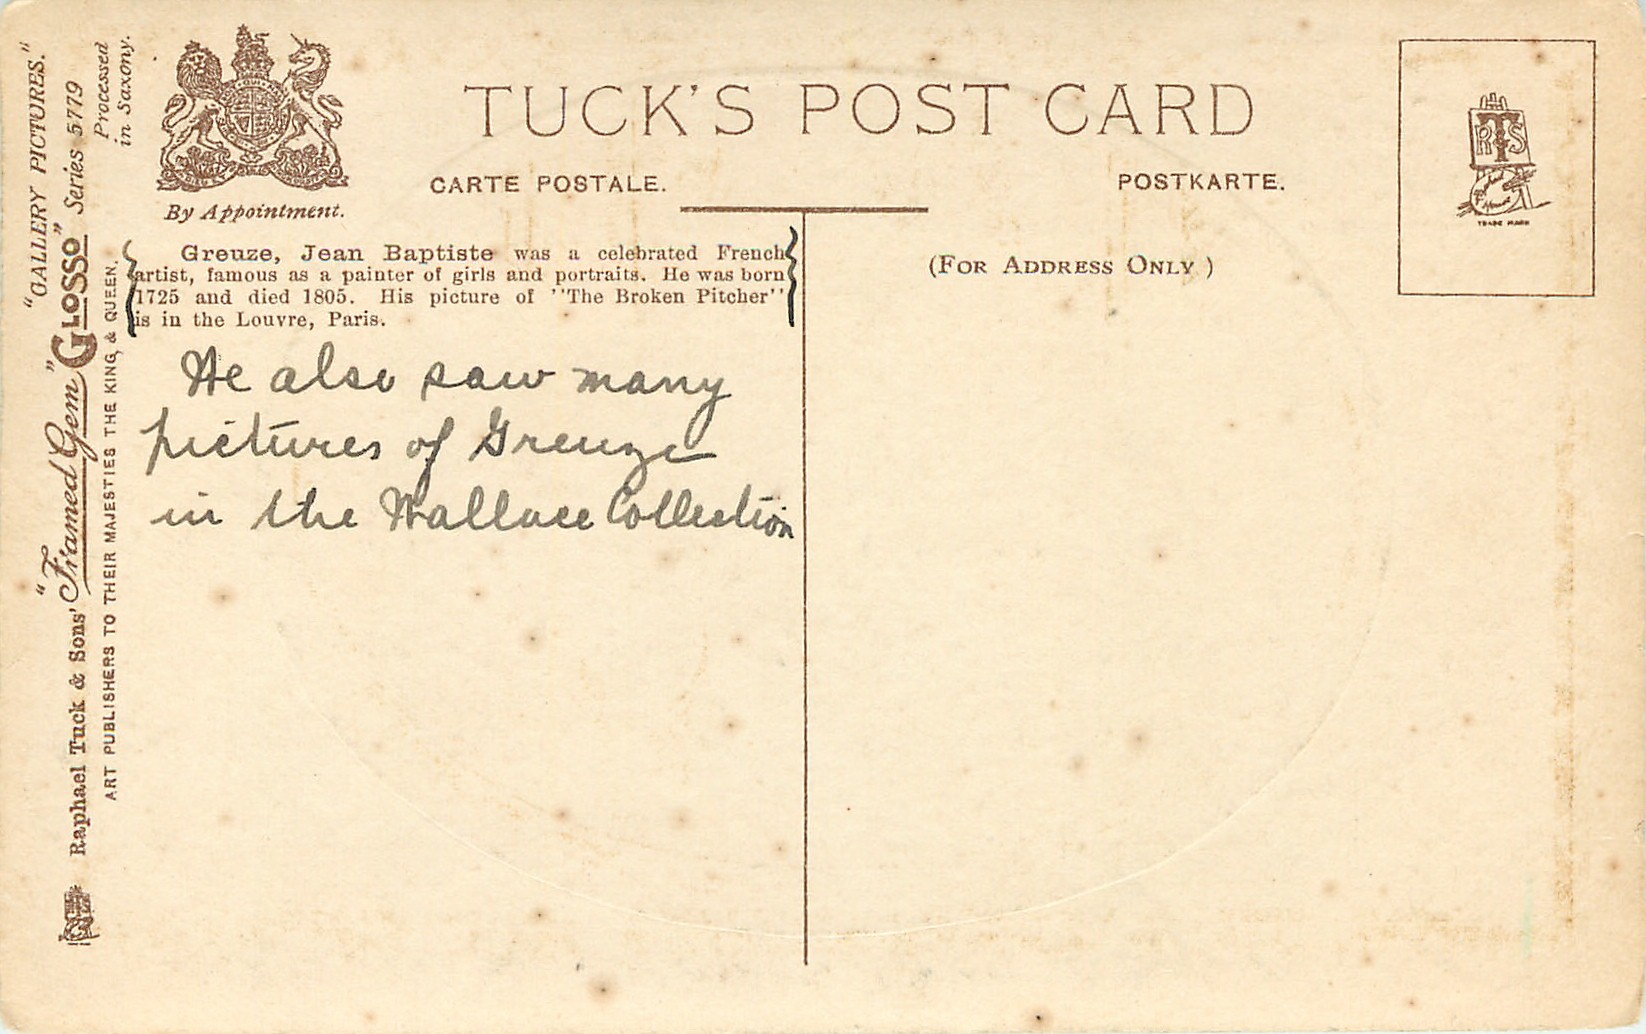 TUCK'S POST CARD
CARTE POSTALE.
POSTKARTE.
By Appointment.
(FOR ADDRESS ONLY )
R T S
TRADE MARK
Greuze, Jean Baptiste was a celebrated French
artist, famous as a painter of girls and portraits. He was born
1725 and died 1805. His picture of ''The Broken Pitcher''
is in the Louvre, Paris.
We also saw many
pictures of Greuze
in the Wallace Collection
Raphael Tuck & Sons' "Framed Gem" GLOSSO" Series 5779
"GALLERY PICTURES."
Processed
in Saxony.
ART PUBLISHERS TO THEIR MAJESTIES THE KING, & QUEEN.